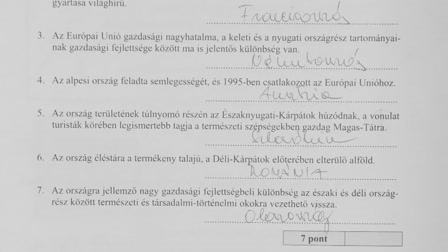 gyártása világhírű.
Franciaország
3. Az Európai Unió gazdasági nagyhatalma, a keleti és a nyugati országrész tartományai-
nak gazdasági fejlettsége között ma is jelentős különbség van.
Németország
4. Az alpesi ország feladta semlegességét, és 1995-ben csatlakozott az Európai Unióhoz.
Ausztria
5. Az ország területének túlnyomó részén az Északnyugati-Kárpátok húzódnak, a vonulat
turisták körében legismertebb tagja a természeti szépségekben gazdag Magas-Tátra.
6. Az ország éléstára a termékeny talajú, a Déli-Kárpátok előterében elterülő alföld.
ROMÁNIA
7. Az országra jellemző nagy gazdasági fejlettségbeli különbség az északi és déli ország-
rész között természeti és társadalmi-történelmi okokra vezethető vissza.
Olaszország
7 pont